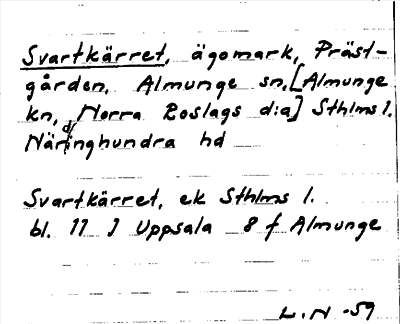 Svartkärret, ägomark, Präst-
gården, Almunge sn, [Almunge
kn, Norra Roslags d:a] Sthlms l.
Närdinghundra hd
Svartkärret, ek Sthlms l.
bl. 77 J Uppsala 8 f Almunge
L.N -59